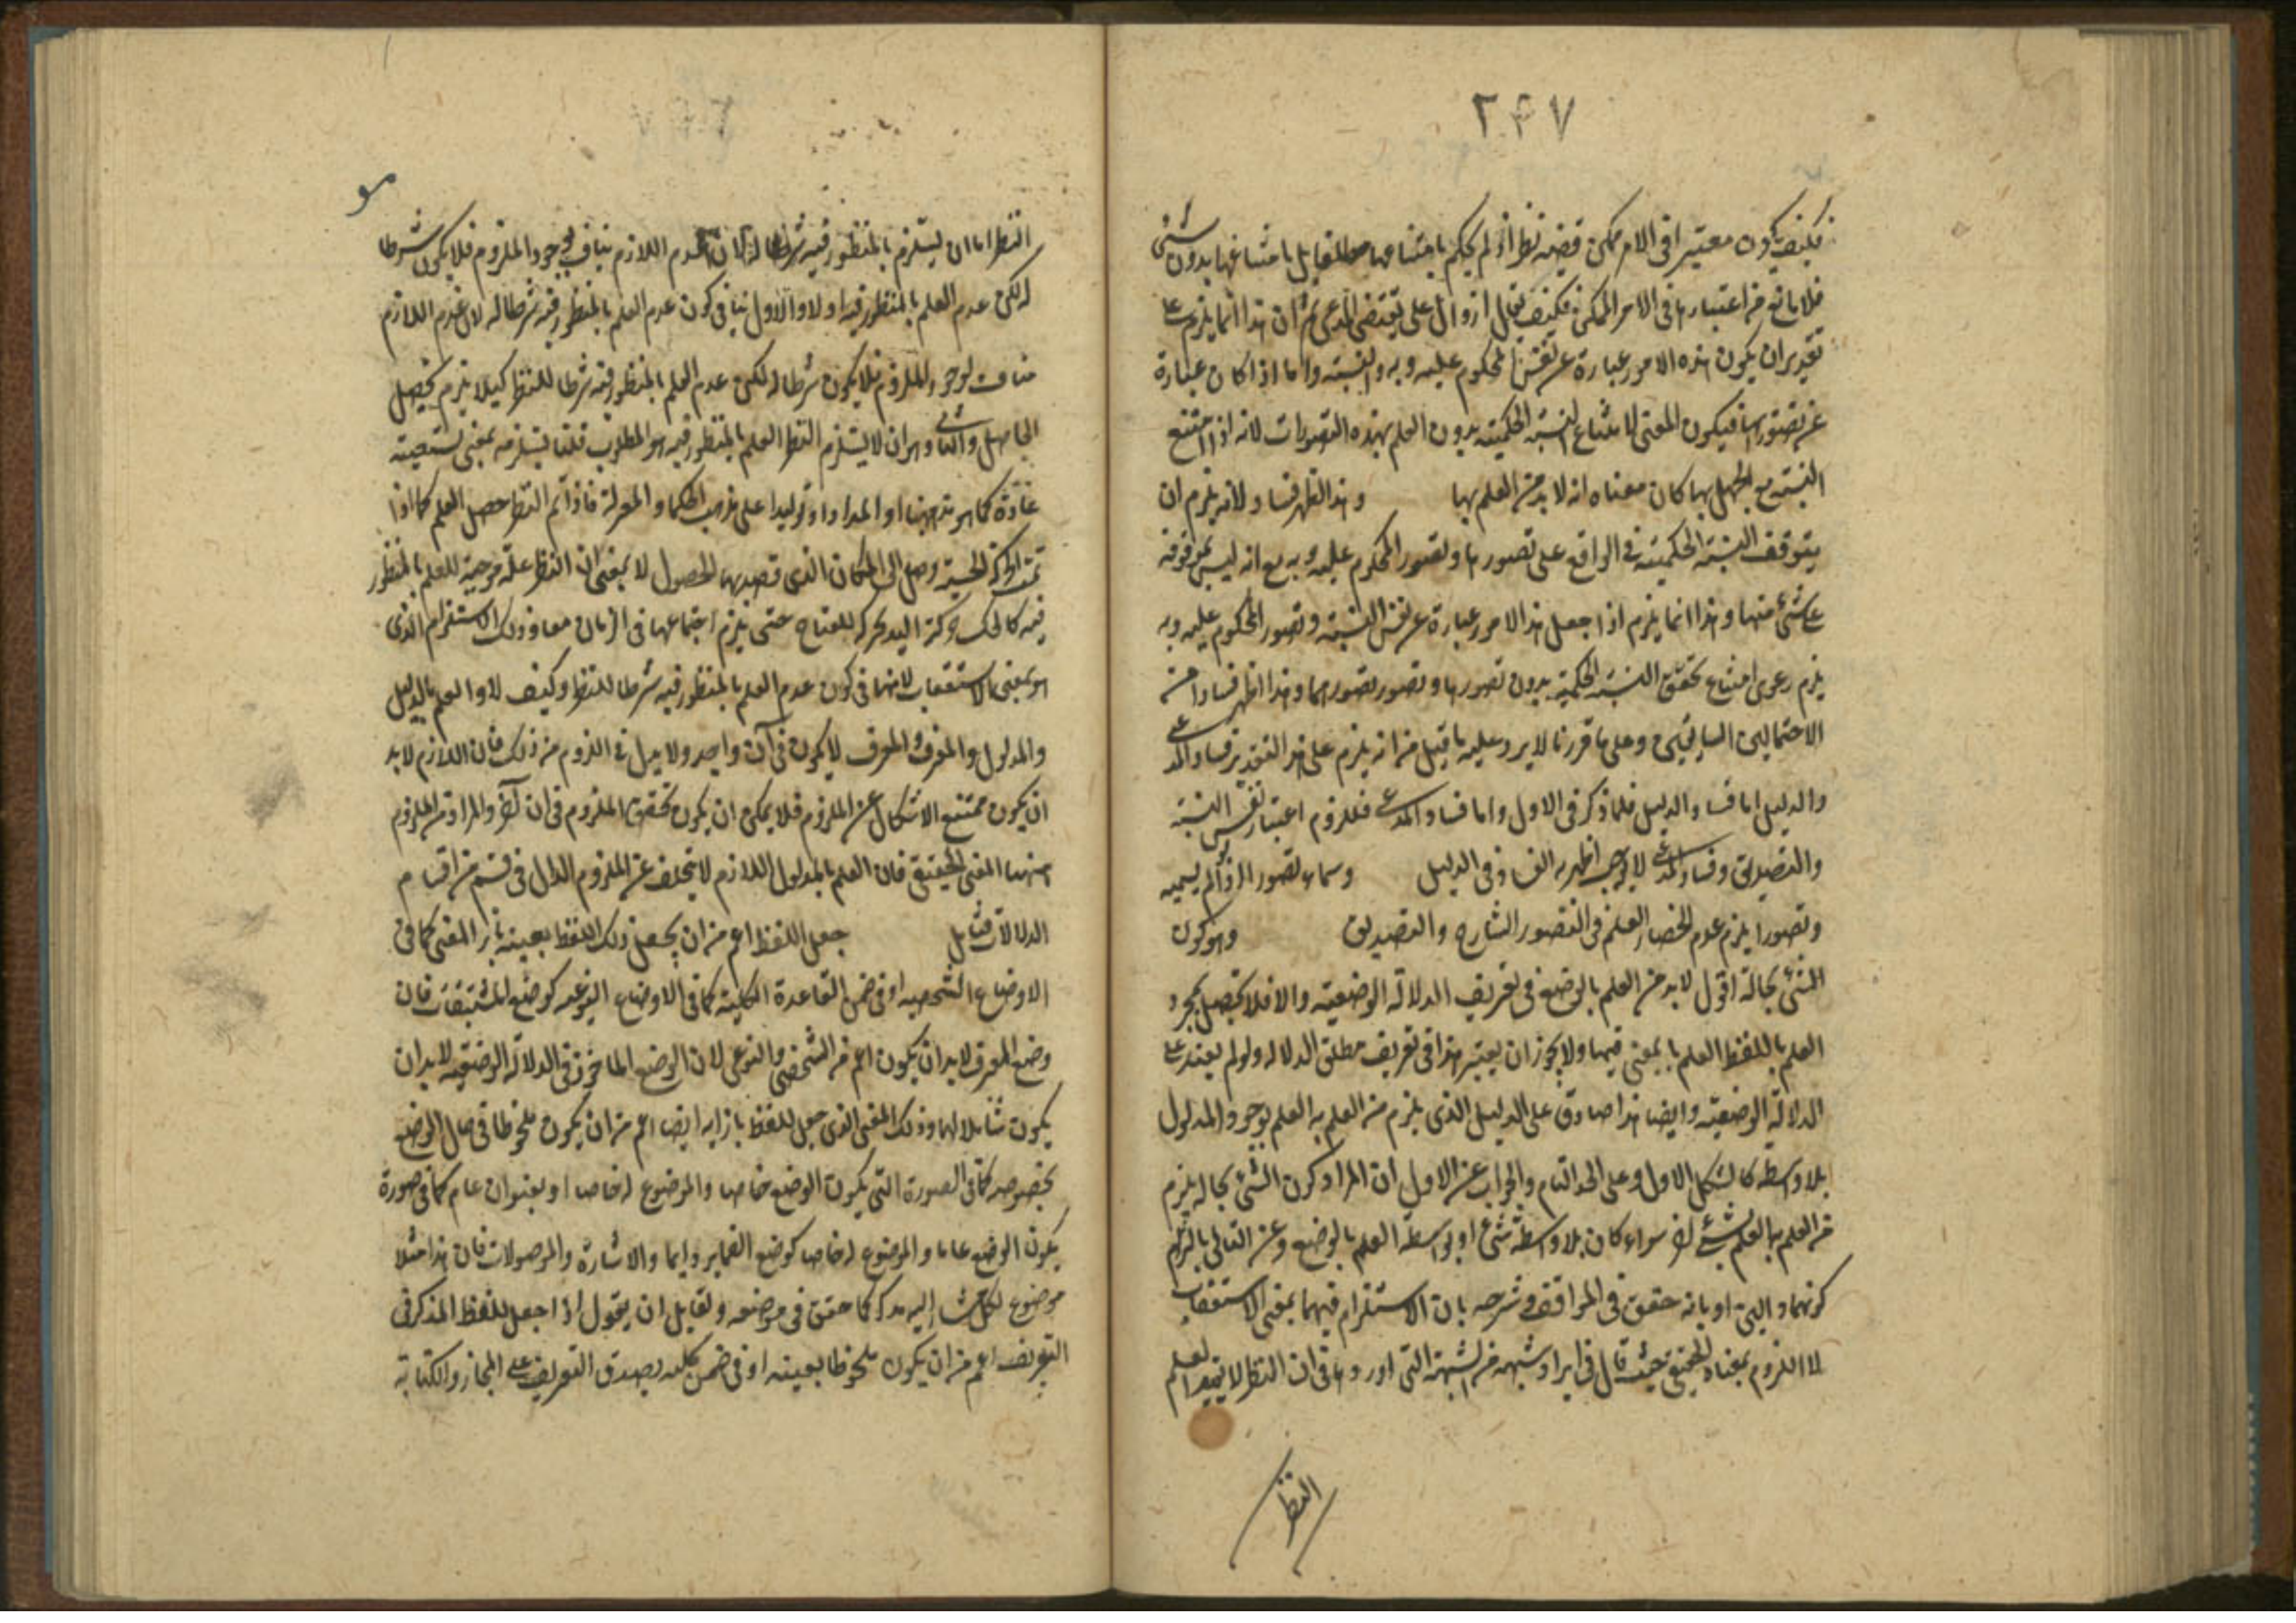 ٢٤٧
فكيف يكون معتبرا في الامر ممكن قضية نظر اذ لم يحكم بامتناعها مطلقا بل بامتناعها بدون شئ
فلا مانع من اعتبارها في الامر الممكن فكيف على يقتضى المدعى ثم ان هذا انما يلزم على
تقدير ان يكون هذه الامور عبارة عن نفس المحكوم عليه وبه والنسبة واما اذا كان عبارة
عن تصورها فيكون المعنى لامتناع النسبة الحكمية بدون العلم بهذه التصورات لانه اذا امتنع
النسبة مع الجهل بها كان معناه انه لا بد من العلم بها وهذا اظهر فسادا لانه يلزم ان
يتوقف النسبة الحكمية في الواقع على تصورها وتصور المحكوم عليه وبه مع انه ليس بموقوفة
على شئ منها وهذا انما يلزم اذا جعل هذا الامور عبارة عن نفس النسبة وتصور المحكوم عليه وبه
يلزم دعوى امتناع تحقق النسبة الحكمية بدون تصورها وتصور تصورهما وهذا اظهر فسادا من
الاحتمالين السابقين وعلى ما قررنا لا يرد عليه ما قيل من انه يلزم على هذا التقدير فساد المدعى
والدليل اما فساد الدليل فلما ذكر في الاول واما فساد المدعى فللزوم اعتبار نفس النسبة
والتصديق وفساد المدعى لا يوجب اظهرية الفساد في الدليل وسماه تصور الرو الم يسميه
وتصورا يلزم عدم انحصار العلم في التصور الشارح والتصديق وهو كون
الشئ بحالة اقول لا بد من العلم بالوضع في تعريف الدلالة الوضعية والا فلا يحصل بمجرد
العلم باللفظ العلم بالمعنى فيها ولا يجوز ان يعتبر هذا في تعريف مطلق الدلالة ولو لم يعتبر على
الدلالة الوضعية وايضا هذا صادق على الدليل الذى يلزم من العلم به العلم بوجود المدلول
بلا واسطة كالشكل الاول وعلى الحد التام والجواب عن الاول ان المراد كون الشئ بحاله يلزم
من العلم به العلم بشئ اخر سواء كان بلا واسطة شئ او بواسطة العلم بالوضع وعن الثانى بالتزام
كونهما دالين او بانه حقق في المواقف وشرحه بان الاستلزام فيهما بمعنى الاستعقاب
لا اللزوم بمعناه الحقيقى حيث قال في ايراد شبهة من الشبهة التى اوردها في ان النظر لا يفيد العلم
النظر
النظر اما ان يستلزم بالمنظور فيه شرطا له لان عدم اللازم مناف لوجود الملزوم فلا يكون شرطا
له لكن عدم العلم بالمنظور فيه اولا والاول ينافى كون عدم العلم بالمنظور فيه شرطا له لان عدم اللازم
مناف لوجود الملزوم فلا يكون شرطا له لكن عدم العلم بالمنظور فيه شرط للنظر كيلا يلزم تحصيل
الحاصل والثانى وهو ان لا يستلزم النظر العلم بالمنظور فيه هو المطلوب قلنا يستلزمه بمعنى يستعقبه
عادة كما هو مذهبنا او اعدادا او توليدا على مذهب الحكماء والمعتزلة فاذا تم النظر حصل العلم كما اذا
تمت الحركة الحسية وصل الى المكان الذى قصد بها الحصول لا بمعنى ان النظر علة موجبة للعلم بالمنظور
فيه كايجاب حركة اليد لحركة المفتاح حتى يلزم اجتماعها في الزمان معا وذلك الاستلزام الذى
هو بمعنى الاستعقاب لا ينافى كون عدم العلم بالمنظور فيه شرطا للنظر وكيف لا والعلم بالدليل
والمدلول والمعرف والمعرف لا يكون في آن واحد ولا بد في اللزوم من ذلك فان اللازم لا بد
ان يكون ممتنع الانفكاك عن الملزوم فلا يمكن ان يكون تحقق الملزوم في ان آخر والمراد من الملزوم
ههنا المعنى الحقيقى فان العلم بالمدلول اللازم لا يتخلف عن الملزوم الدال في قسم من اقسام
الدلالات فتأمل جعل اللفظ اعم من ان يجعل ذلك اللفظ بعينه بازاء المعنى كما في
الاوضاع الشخصية او في ضمن القاعدة الكلية كما في الاوضاع النوعية كوضع المشتقات فان
وضع المعرف لا بد ان يكون اعم من الشخصى والنوعى لان الوضع الماخوذ في الدلالة الوضعية لا بد ان
يكون شاملا لهما وذلك المعنى الذى جعل اللفظ بازايه ايضا اعم من ان يكون ملحوظا في حال الوضع
بخصوصه كما في الصورة التى يكون الوضع خاصا والموضوع له خاصا او بعنوان عام كما في صورة
يكون الوضع عاما والموضوع له خاصا كوضع الضماير واسما والاشارة والموصولات فان هذا مثلا
موضوع لكل مشار اليه مذكر كما حقق في موضعه ولقايل ان يقول اذا جعل اللفظ المذكور في
التعريف اعم من ان يكون ملحوظا بعينه او في ضمن كلية يصدق التعريف على المجاز والكناية